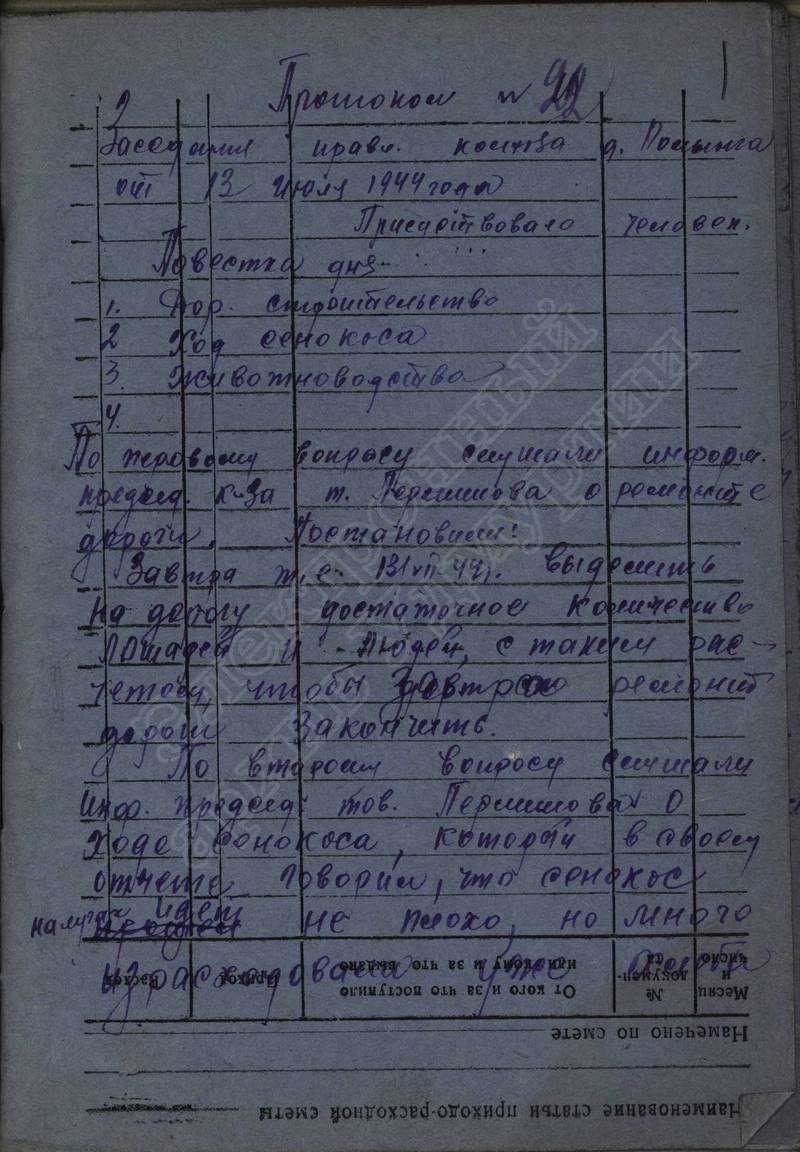 Протокол № 22
Заседания правл. колхоза д.
от 13 июля 1944 года
Присутствовало человек.
Повестка дня
1. Дор. строительство
2 Ход сенокоса
3. Животноводство
4.
По первому вопросу слушали информ.
председ. к-за т. Першинова о ремонте
дороги. Постановили:
Завтра т.е. выделить
на дорогу достаточное количество
лошадей и людей, с таким рас-
четом, чтобы ремонт
дороги закончить.
По второму вопросу слушали
инф. председ. тов. Першинова о
ходе сенокоса, который в своем
отчете говорил, что сенокос
на лугах идет не плохо, но много
израсходовали уже
Месяц и число
№ документа
От кого и за что поступило или кому и за что выдано
Приход
Расход
Намечено по смете
Наименование статьи приходо-расходной сметы